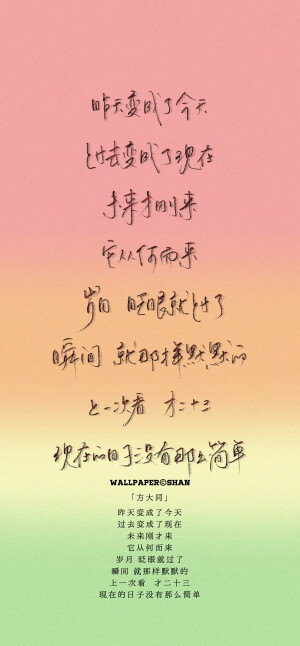 昨天变成了今天
过去变成了现在
未来才刚来
它从何而来
岁月 眨眼就过了
瞬间 就那样默默的
上一次看 才二十三
现在的日子没有那么简单
WALLPAPER©SHAN
「方大同」
昨天变成了今天
过去变成了现在
未来刚才来
它从何而来
岁月 眨眼就过了
瞬间 就那样默默的
上一次看 才二十三
现在的日子没有那么简单